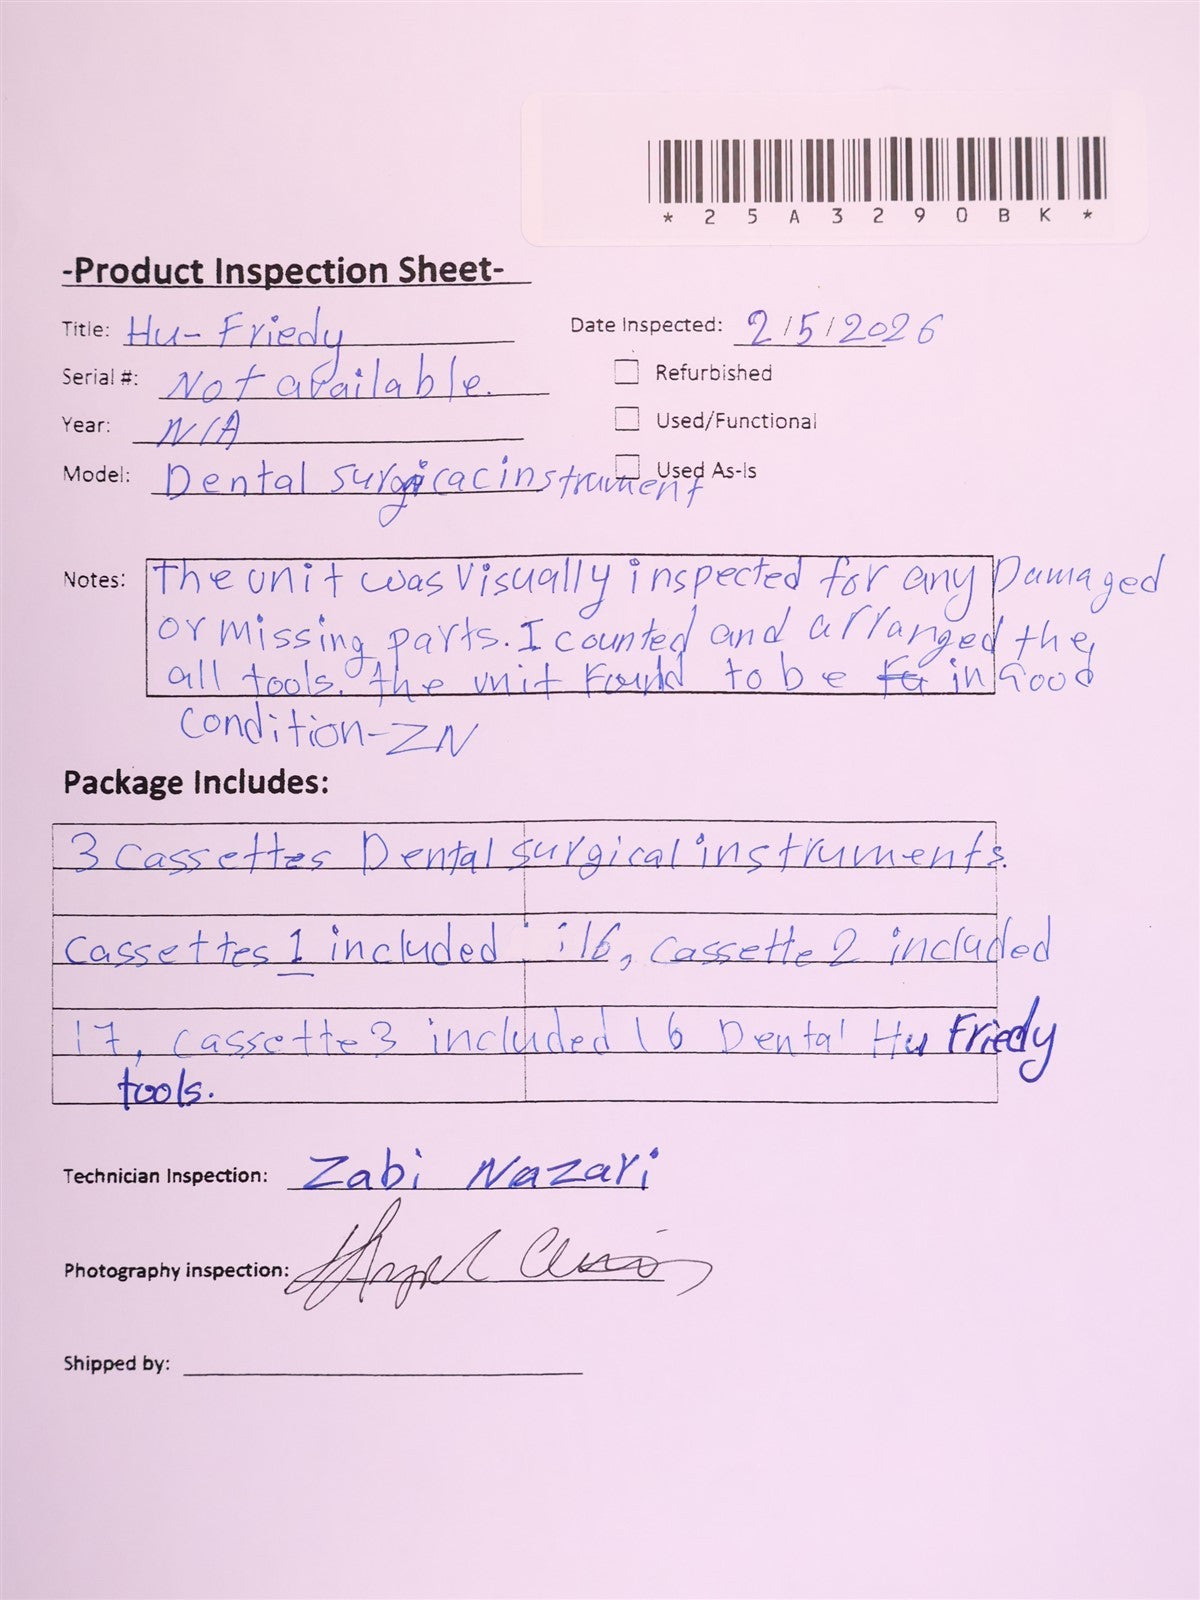 *25A3290BK*
-Product Inspection Sheet-
Title: Hu-Friedy
Date Inspected: 2/5/2026
Serial #: Not available.
Refurbished
Year: N/A
Used/Functional
Model: Dental surgicac instrument
Used As-Is
Notes: The unit was visually inspected for any Damaged
or missing parts. I counted and arranged the
all tools. the unit Found to be in Good
condition-ZN
Package Includes:
3 Cassettes Dental surgical instruments.
Cassettes 1 included : 16, Cassette 2 included
17, cassette 3 included 16 Dental Hu Friedy
tools.
Technician Inspection: Zabi Nazari
Photography inspection:
Shipped by: